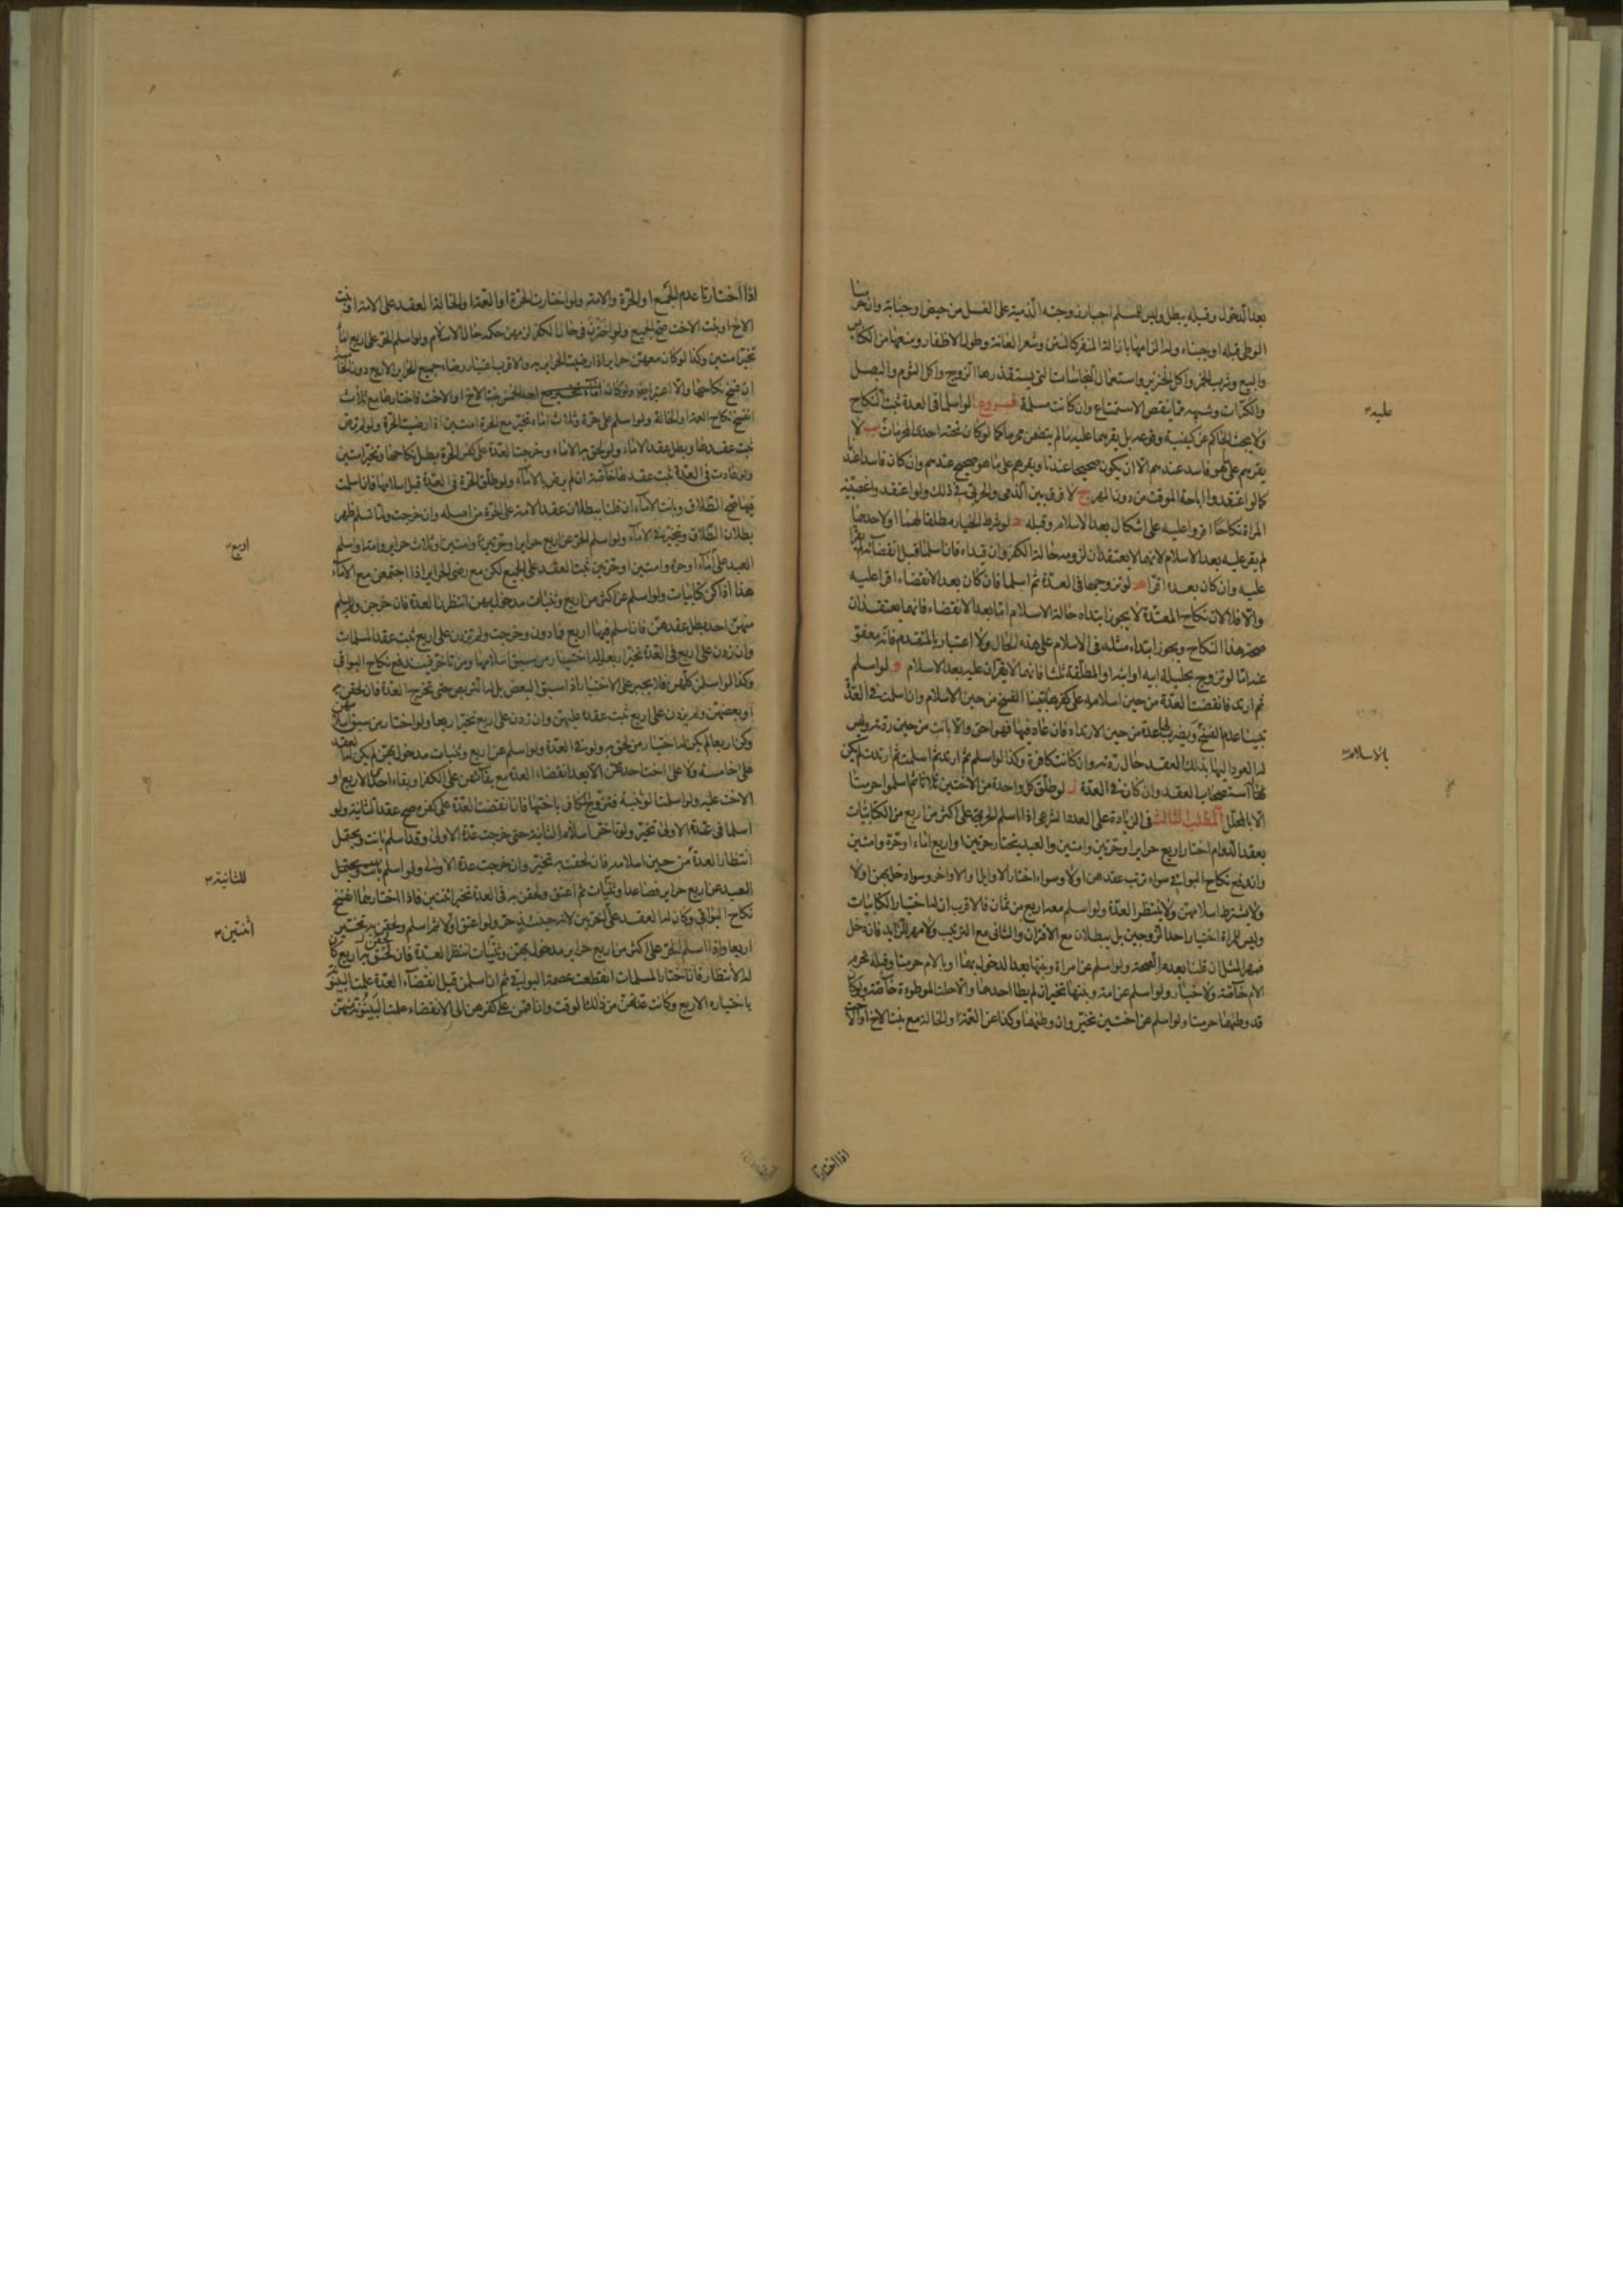 بعد الدخول وقبله يبطل وليس للمسلم اجبار زوجته الذمية على الغسل من حيض وجنابة وان حرمنا
الوطى قبله او جبناه وله الزامها بازالة المنفر كالنتن وشعر العانة وطول الاظفار ومنعها من الكنايس
والبيع وشرب الخمر واكل الخنزير واستعمال النجاسات التى يستقذرها الزوج واكل الثوم والبصل
والكراث وشبهه مما ينقص الاستمتاع وان كانت مسلمة فروع ا لو اسلما فى العدة ثبت النكاح
ولا يبحث الحاكم عن كيفية وقوعه بل يقرهما عليه ما لم يتضمن محرما كما لو كان تحته احدى المحرمات ب لا
يقرهم على ما هو فاسد عندهم الا ان يكون صحيحا عندنا ويقرهم على ما هو صحيح عندهم وان كان فاسدا عندنا
كما لو اعتقدوا اباحة الموقت من دون المهر ج لا فرق بين الذمى والحربى فى ذلك ولو اعتقدوا غصبية
المراة نكاحا اقروا عليه على اشكال بعد الاسلام وقبله د لو شرط الخيار مطلقا لهما او لاحدهما
لم يقر عليه بعد الاسلام لانهما لا يعتقدان لزومه حالة الكفر وان قيداه فان اسلما قبل انقضائه لم يقرا
عليه وان كان بعده اقرا ه لو تزوجها فى العدة ثم اسلما فان كان بعد الانقضاء اقرا عليه
والا فلا لان نكاح المعتدة لا يجوز ابتداه حالة الاسلام اما بعد الانقضاء فانهما يعتقدان
صحة هذا النكاح ويجوز ابتداء مثله فى الاسلام على هذه الحال ولا اعتبار بالمتقدم فانه معفو
عنه اما لو تزوج بحليلة ابيه او ابنه او المطلقة ثلثا فانهما لا يقران عليه بعد الاسلام و لو اسلم
ثم ارتد فانقضت العدة من حين اسلامه على كفرها تبينا الفسخ من حين الاسلام وان اسلمت فى العدة
تبينا عدم الفسخ ويضرب لها عدة من حين الارتداد فان عاد فيها فهو احق والا بانت من حين ردته وليس
له العود اليها بذلك العقد حال ردته وان كانت كافرة وكذا لو اسلم ثم ارتد ثم اسلمت ثم ارتدت لم يكن
لهما استصحاب العقد وان كان فى العدة ز لو طلق كل واحدة من الاختين ثلاثا ثم اسلموا حرمتا
الا بالمحلل المطلب الثالث فى الزيادة على العدد الشرعى اذا اسلم الحربى على اكثر من اربع من الكتابيات
بعقد الدوام اختار اربع حراير او حرتين وامتين والعبد يختار حرتين او اربع اماء او حرة وامتين
واندفع نكاح البواقى سواء ترتب عقدهن او لا وسواء اختار الاوايل او الاواخر وسواء دخل بهن او لا
ولا يشترط اسلامهن ولا ينتظر العدة ولو اسلم معه اربع من ثمان فالاقرب ان له اختيار الكتابيات
وليس للمراة اختيار احد الزوجين بل يبطلان مع الاقتران والثانى مع الترتيب ولا مهر للزايد فان دخل
فمهر المثل ان قلنا بعدم الصحة ولو اسلم عن امراة وبنتها بعد الدخول بهما او بالام حرمتا وقبله تحرم
الام خاصة ولا خيار ولو اسلم عن امة وبنتها تخير ان لم يطا احدهما والا حلت الموطوءة خاصة ولو كان
قد وطئهما حرمتا ولو اسلم عن اختين تخير وان وطئهما وكذا عن العمة او الخالة مع بنت الاخ او الاخت
عليه
بالاسلام
اذا اختارتا
اذا اختارتا عدم الجمع او الحرة والامة ولو اختارت الحرة او العمة او الخالة العقد على الامة او بنت
الاخ او بنت الاخت صح الجميع ولو اخترن فى حال الكفر لزمهن حكمه حال الاسلام ولو اسلم الحر على اربع اماء
تخير امتين وكذا لو كان معهن حراير اذا رضيت الحراير به والاقرب اعتبار رضاء جميع الحراير الاربع دون الخامسة
انفسخ نكاح العمة او الخالة ولو اسلم على حرة وثلاث اماء تخير مع الحرة امتين اذا رضيت الحرة ولو لم ترض
ثبت عقدها وبطل عقد الاماء ولو لحق به الاماء وخرجت العدة على كفر الحرة بطل نكاحها وتخير امتين
ولو عادت فى العدة ثبت عقدها خاصة ان لم يرض بالاماء ولو طلق الحرة فى العدة قبل اسلامها فان اسلمت
فيها صح الطلاق وبانت الاماء ان قلنا ببطلان عقد الامة على الحرة من اصله وان خرجت ولما تسلم ظهر
بطلان الطلاق وتخير فى الاماء ولو اسلم الحر عن اربع حراير او حرتين وامتين او ثلاث حراير وامة او اسلم
العبد على اماء او حرة وامتين او حرتين ثبت العقد على الجميع لكن مع رضى الحراير اذا اجتمعن مع الاماء
هذا اذا كن كتابيات ولو اسلم عن اكثر من اربع وثنيات مدخول بهن انتظرنا العدة فان خرجن ولم يسلم
منهن احد بطل عقدهن فان اسلم فيها اربع فما دون وخرجت ولم تزدن على اربع ثبت عقد المسلمات
وان زدن على اربع فى العدة تخير اربعا له اختيار من سبق اسلامها ومن تاخر فيندفع نكاح البواقى
وكذا لو اسلمن كلهن فلا يجبر على الاختيار اذا سبق البعض بل له التربص حتى تخرج العدة فان لحقن به
او بعضهن ولم يزدن على اربع ثبت عقده عليهن وان زدن على اربع تخير اربعا ولو اختار من سبق اسلامهن
وكن اربعا لم يكن له اختيار من لحق به ولو فى العدة ولو اسلم عن اربع وثنيات مدخول بهن لم يكن له العقد
على خامسة ولا على اخت احدهن الا بعد انقضاء العدة مع بقائهن على الكفر او بقاء احدى الاربع او
الاخت عليه ولو اسلمت الوثنية فتزوج الكافر باختها فان انقضت العدة على كفره صح عقد الثانية ولو
اسلما فى عدة الاولى تخير ولو تاخر اسلامه الثانية حتى خرجت عدة الاولى وقد اسلم بانت ويحتمل
انتظار العدة من حين اسلامه فان لحقت به تخير وان خرجت عدة الاولى ولو اسلم
العبد عن اربع حراير فصاعدا وثنيات ثم اعتق ولحقن به فى العدة تخير اثنتين فاذا اختارهما انفسخ
نكاح البواقى وكان له العقد على اخريين لانه حينئذ حر ولو اعتق اولا ثم اسلم ولحقن به تخير
اربعا واذا اسلم الحر على اكثر من اربع حراير مدخول بهن وثنيات انتظر العدة فان لحق به اربع كان
له الانتظار فان اختار المسلمات انقطعت عصمة البواقى ثم ان اسلمن قبل انقضاء العدة علمت البينونة
باختياره الاربع وكانت عدتهن من ذلك الوقت وان اقمن على كفرهن الى الانقضاء علمت البينونة منهن
اربع
للثانية
اثنتين